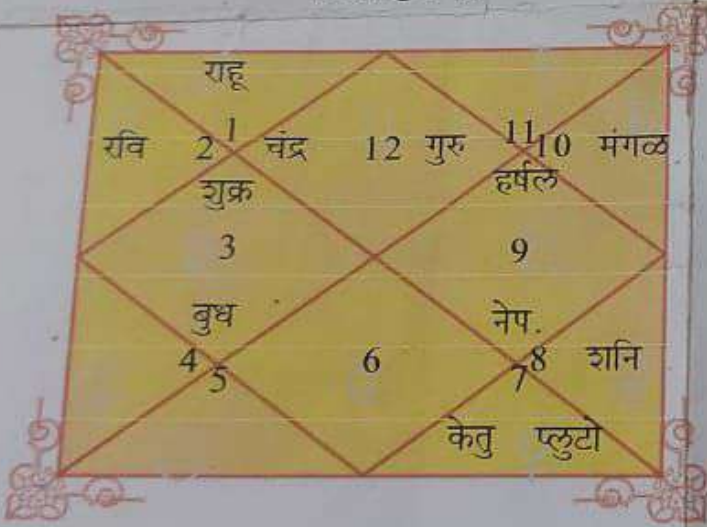 राहू
रवि 2 1 चंद्र 12 गुरु 11 10 मंगळ
शुक्र हर्षल
3 9
बुध नेप.
4 5 6 7 8 शनि
केतु प्लुटो